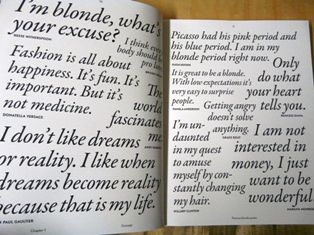 I'm blonde, what's
your excuse?
REESE WITHERSPOON
I think every
body should be
Fashion is all about
happiness. It's fun. It's
important. But it's
not medicine.
DONATELLA VERSACE
The
world
fascinates
I don't like dreams
or reality. I like when
dreams become reality
because that is my life.
JEAN PAUL GAULTIER
Picasso had his pink period and
his blue period. I am in my
blonde period right now.
HUGH HEFNER
It is great to be a blonde.
With low expectations it's
very easy to surprise
people.
PAMELA ANDERSON
Only
do what
your heart
tells you.
PRINCESS DIANA
Getting angry
doesn't solve
anything.
GRACE KELLY
I'm un-
daunted
in my quest
to amuse
myself by con-
stantly changing
my hair.
HILLARY CLINTON
I am not
interested in
money, I just
want to be
wonderful.
MARILYN MONROE